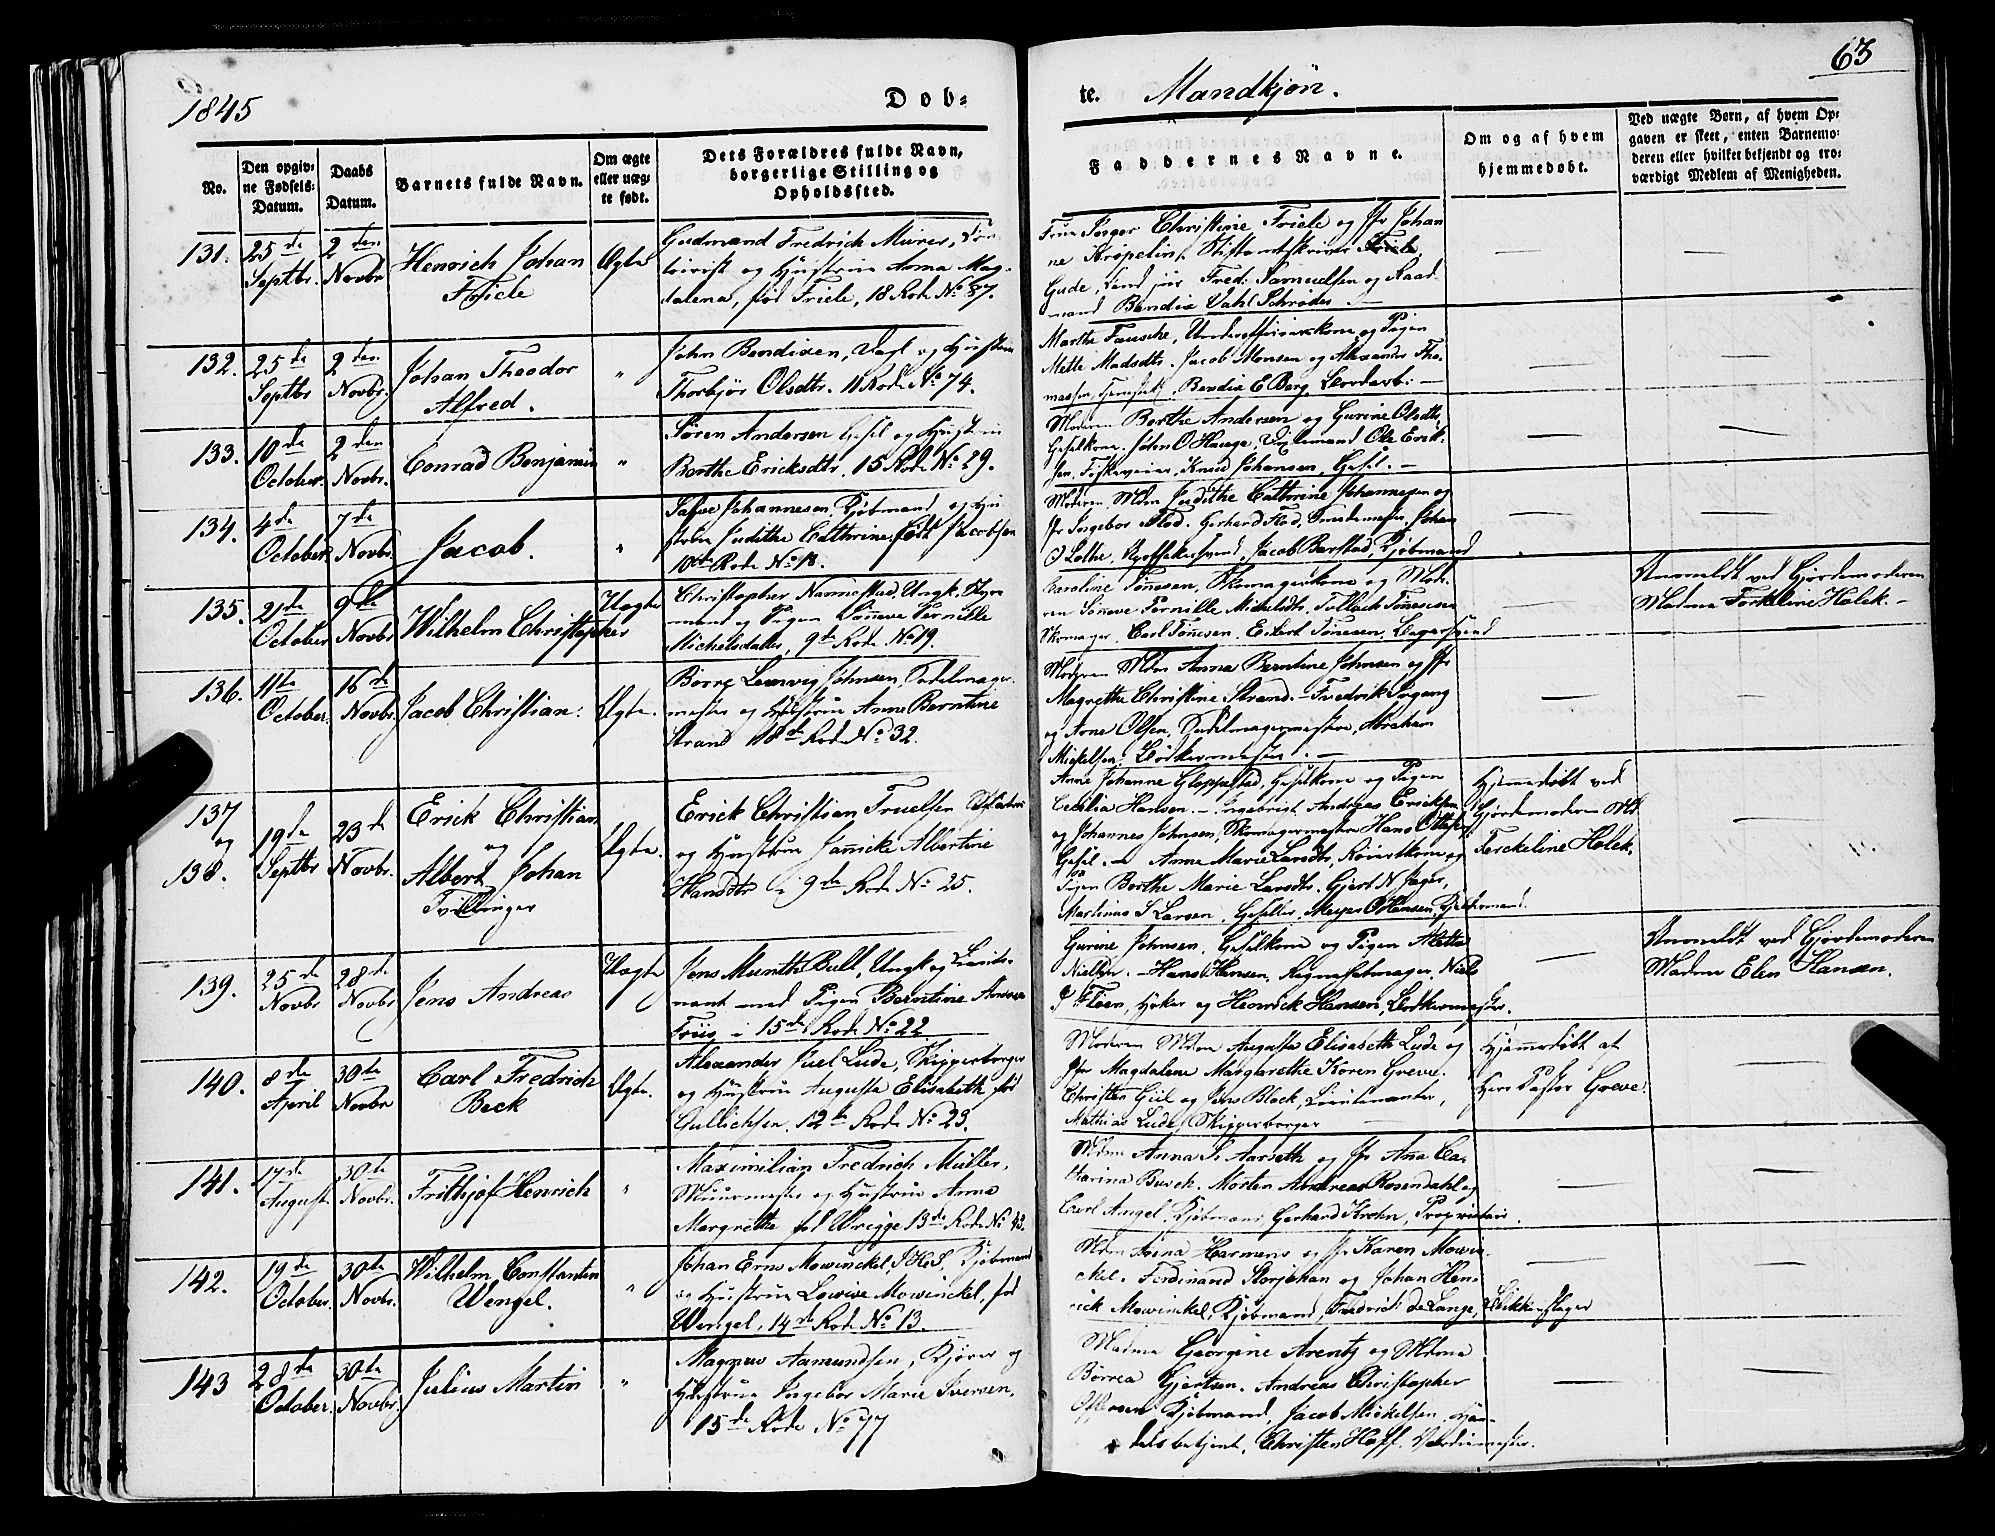 1845
Dob-
te. Mandkjøn.
63
No.
Den opgiv-
ne Fødsels-
Datum.
Daabs
Datum.
Barnets fulde Navn.
Om ægte
eller uæg-
te født.
Dets Forældres fulde Navn,
borgerlige Stilling og
Opholdssted.
Faddernes Navne.
Om og af hvem
hjemmedøbt.
Ved uægte Børn, af hvem Op-
gaven er skeet, enten Barnemo-
deren eller hvilket bekjendt og tro-
værdigt Medlem af Menigheden.
131.
25de
Septbr.
2den
Novbr
Henrich Johan
Friele
Ægte
Gudmand Fredrich Meyer,
og Hustrue Anna Mag-
dalena, fød Friele, 18 Rode No 37.
Christine Friele og Jfr Johan
ne Krøpelin, Stiftamtskriver Friele
Gude, Fred. Samuelsen og Raad-
mand Bendix Vahl Schrøder.
—
—
132.
25de
Septbr
2den
Novbr.
Johan Theodor
Alfred.
"
John Bendixen, Vagt og Hustrue
Thorbjør Olsdtr. 11 Rode No 74.
Marthe Fausche, Underofficerskone og Pigen
Mette Madsdtr. Jacob Monsen og Alexander Tho-
massen, Bendix E Berg,
—
—
133.
10de
October.
2den
Novbr.
Conrad Benjamin
"
Søren Andersen Gesel og Hustrue
Berthe Ericksdtr. 15 Rode No 29.
Moderen Berthe Andersen og Gurine Olsdtr,
Geselkone. John O Hauge, Ole Erik-
sen, Fiskeveier, Knud Johansen, Gesel.
—
—
134.
4de
October
7de
Novbr.
Jacob.
"
Johannesen, Kjøbmand og Hu
strue Judithe Cathrine født Jacobsen
10de Rode No 18.
Moderen Mdm Judithe Cathrine Johannesen og
Jfr Flod. Gerhard Flod, Smedemester, Johan
J Lothe, Jacob Barstad, Kjøbmand
—
—
135.
21de
October
9de
Novbr
Wilhelm Christopher
Uægte
Christopher Nannestad, Ungk.
og Pigen Pernille
Michelsdatter, 9de Rode No 19.
Caroline Tønnesen, Skomagerkone og Mode-
ren Pernille Michelsdtr. Tollach Tønnesen
Skomager, Carl Tønesen, Eilert Tønesen, Bagersvend
—
Anmeldt ved Gjordemoderen
Madme Torkeline Holck.
136.
11te
October.
16de
Novbr.
Jacob Christian.
Ægte.
Børre Johnsen, Sadelmager-
mester og Hustrue Anne Berntine
Strand 18de Rode No 32.
Moderen Mdm Anna Berntine Johnsen og Jfr
Magrethe Christine Strand. Fredrik
og Arne Olsen, Sadelmagermestere, Abraham
Mickelsen, Bødkermester.
—
—
137
og
138.
19de
Septbr
23de
Novbr.
Erick Christian
og
Albert Johan
Tvillinger
Ægte.
Erick Christian Truelsen
og Hustrue Jannicke Albertine
Hansdtr i 9de Rode No 25.
Anne Johanne Gloppestad, Geselkone og Pigen
Cecilia Hansen. Ingebrigt Andreas Ericksen
og Johannes Johnsen, Skomagermester Hans
Gesel. Anne Marie Larsdtr, og
Pigen Berthe Marie Larsdtr. Gjert N Jager,
Martinus S Larsen, Geseller, Meyer O Hansen, Kjøbmand.
Hjemmedøbt ved
Gjordemoderen
Terckeline Holck.
—
139.
25de
Novbr
28de
Novbr
Jens Andreas
Uægte
Jens Munthe Bull, Ungk og Lieute-
nant med Pigen Berntine
Friis i 15de Rode No 22
Gurine Johnsen, Geselkone og Pigen Alette
Nielsen. Hans Hansen, Niels
J Fleen, Høker og Henrick Hansen, Bødkermester.
—
Anmeldt ved Gjordemoderen
Madme Elen Hansen.
140.
8de
April
30te
Novbr
Carl Fredrich
Beck
Ægte.
Alexander Juel Lude, Skipperborger
og Hustrue Augusta Elisabeth fød
Gullichsen. 12te Rode No 23.
Moderen Mdme Augusta Elisabeth Lude og
Jfr Magdalene Margarethe Koren Greve.
Christen Giil og Jens Block, Lieutenanter,
Mathias Lude, Skipperborger
Hjemmedøbt af
Herr Pastor Greve.
—
141.
17de
August.
30te
Novbr.
Frithjof Henrich
"
Maximilian Fredrich Müller,
Muurmester og Hustrue Anna
Margrethe fød Wrigge 13de Rode No 43.
Mdm Anna S. Aarseth og Jfr Ana Ca-
tharina Busck. Morten Andreas Rosendahl og
Carl Angel, Kjøbmænd Gerhard Krohn, Proprietair.
—
—
142.
19de
October.
30te
Novbr.
Wilhelm Constantin
Wengel.
"
Johan Ernst Mowinckel, Kjøbmand
og Hustrue Lovise Mowinckel, fød
Wengel, 14de Rode No 13.
Mdm Anna Harmens og Jfr Karen Mowin-
ckel. Ferdinand Storjohan og Johan Hen-
rick Mowinckel, Kjøbmænd, Fredrich de Lange, Blikkenslager
—
—
143
28de
October.
30te
Novbr.
Julius Martin
"
Magnus Aamundsen, Kjører og
Hustrue Ingebor Marie Iversen,
15de Rode No 77
Madme Georgine Arentz og Mdme
Børrea Gjertsen. Andreas Christopher
Kjøbmand, Jacob Mickelsen, Han-
delsbetjent, Christen Hoff,
—
—